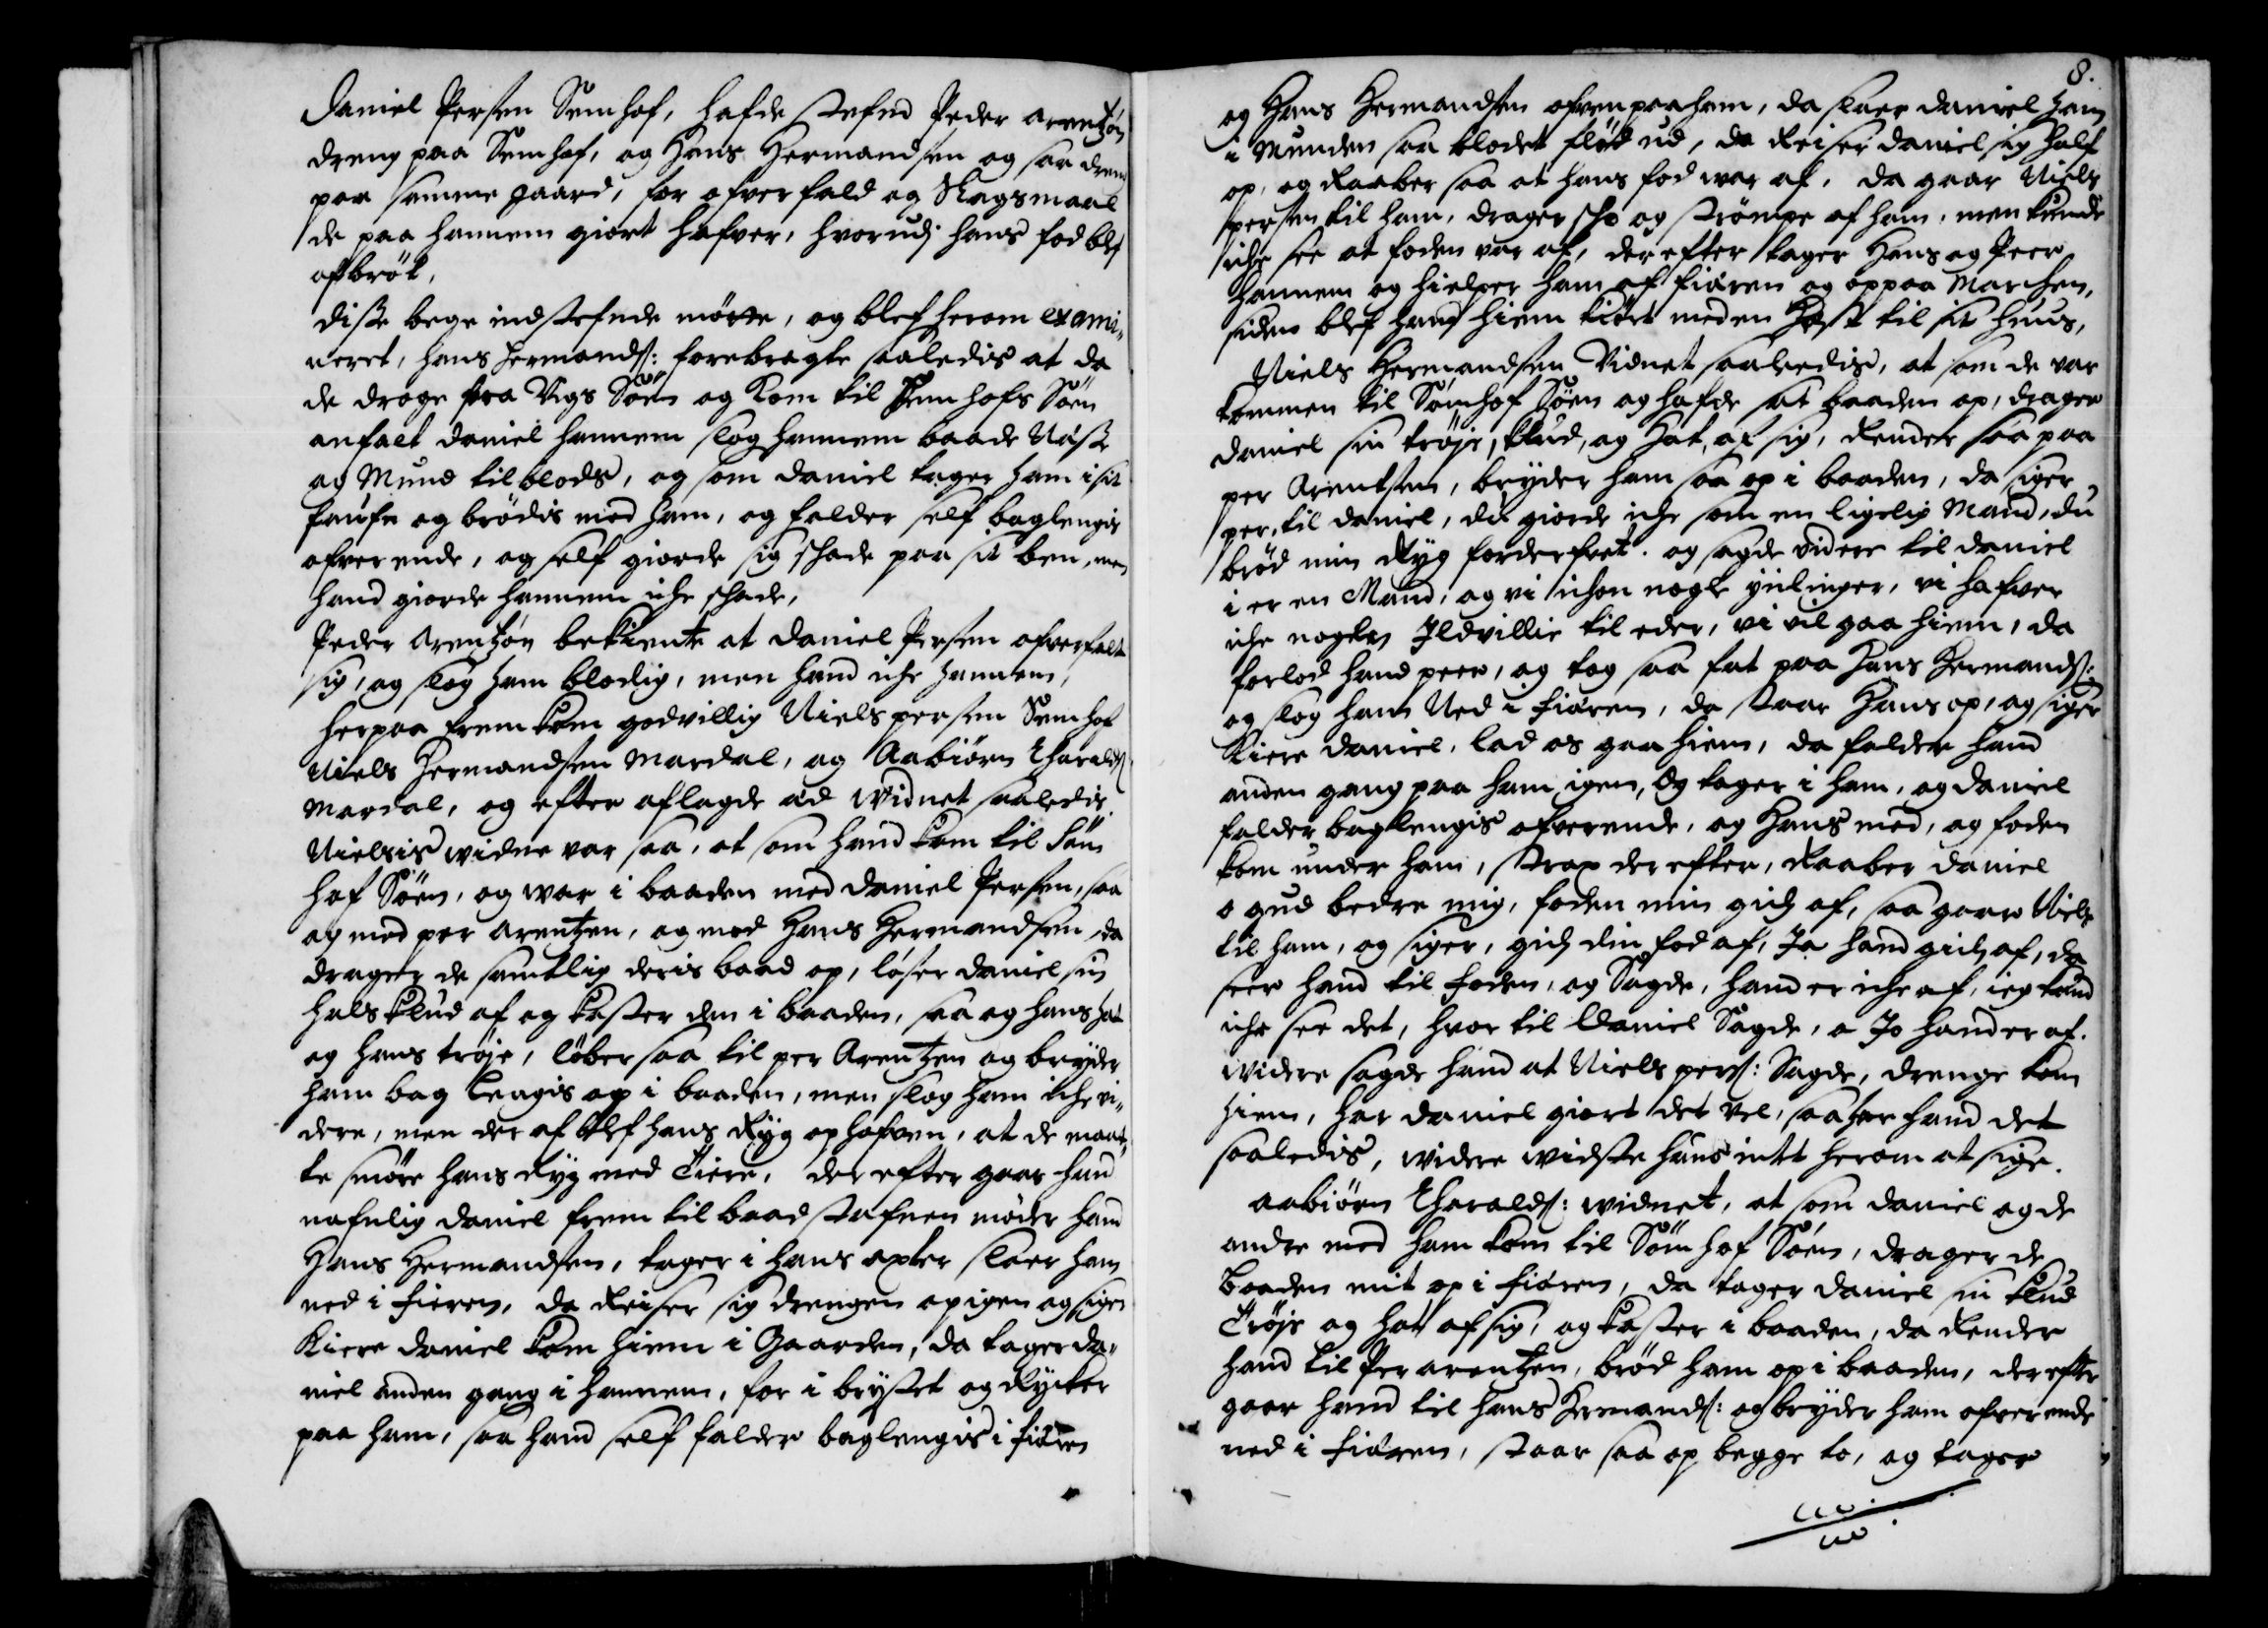 Daniel Persen Semhof, hafde stefnd Peder Arentzøn
dreng paa Semhof, og Hans Hermandsen og saa dreng
paa samme gaard, for ofverfald og Slagsmaal
de paa hannem giort hafver, hvorudj hans fod blef
afbrøt,
disse bege indstefnde møtte, og blef herom exami-
neret, Hans Hermands: forebragte saaledis at da
de droge fra Vigs Søen og kom til Semhofs Søen
anfalt Daniel hannem slog hannem baade Næse
og Mund til blods, og som Daniel tager ham i sit
faufn og brødis med ham, og falder self baglengis
ofverende, og self giorde sig schade paa sit ben, men
hand giorde hannem iche schade,
Peder Arentzøn bekiente at Daniel Persen ofverfalt
sig, og slog ham blodig, men hand iche hannem,
herpaa fremkom godvillig Niels persen Semhof
Niels Hermandsen Mardal, og Aabiørn Haralds
Mardal, og efter aflagde æd vidnet saaledis
Nielsis widne var saa, at som hand kom til Søm
hof Søen, og war i baaden med Daniel Persen, saa
og med per Arentzen, og med Hans Hermandsen, da
drager de samtlig deris baad op, løser Daniel sin
halsklud af og kaster den i baaden, saa og hans hat
og hans trøje, løber saa til per Arentzen og bryder
ham bag lengis op i baaden, men slog ham iche vi-
dere, men der af blef hans Ryg ophofven, at de maat-
te smøre hans Ryg med Tiere, der efter gaar hand
nafnlig Daniel frem til baadstafnen møder hand
Hans Hermandsen, tager i hans axler slaer ham
ned i fieren, da Reiser sig drengen op igen og siger
Kiere Daniel kom hiem i Gaarden, da tager Da-
niel anden gang i hannem, for i brystet og Rycker
paa ham, saa hand self falder baglengis i fiæren
8.
og Hans Hermandsen ofven paa ham, da slaer Daniel ham
i Munden saa blodet fløt ud, da Reiser Daniel sig half
op, og Raaber saa at hans fod war af, da gaar Niels
persen til ham, drager scho og strømpe af ham, men kunde
iche see at foden var af, der efter tager Hans og Peer
hannem og hielper ham af fiæren og op paa Marchen,
siden blef hand hiem kiørt med en Hæst til sit huus,
Niels Hermandsen Vidnet saaledis, at som de var
kommen til Sømhof Søen og hafde sat baaden op, drager
Daniel sin trøje, klud, og Hat, af sig, Render saa paa
per Arentsen, bryder ham saa op i baaden, da siger
per, til Daniel, du giorde iche som en ligelig Mand, du
brød min Ryg forderfvet. og sagde videre til Daniel
i er en Mand, og vi ichon nogle ynlinger, vi hafver
iche nogen Ildvillie til eder, vi vil gaa hiem, da
forlod hand peer, og tog saa fat paa Hans Hermands:
og slog ham Ned i fiæren, da staar Hans op, og siger
Kiere Daniel, lad os gaa hiem, da falder hand
anden gang paa ham igen, og tager i ham, og Daniel
falder baglengis ofverende, og Hans med, og foden
kom under ham, strax der efter, Raaber Daniel
o gud bedre mig, foden min gich af, saa gaar Niels
til ham, og siger, gich din fod af, Ja hand gich af, da
seer hand til foden, og Sagde, hand er iche af, ieg kand
iche see det, hvor til Daniel Sagde, o Jo hand er af.
widere sagde hand at Niels pers: Sagde, drenge kom
hiem, har Daniel giort det vel, saa har hand det
saaledis, widere widste hand intet herom at sige.
Aabiørn Haralds: widnet, at som Daniel og de
andre med ham kom til Sømhof Søen, drager de
baaden mit op i fiæren, da tager Daniel sin klud
Trøje og hat af sig, og kaster i baaden, da Render
hand til Per Arentzen, brød ham op i baaden, der efter
gaar hand til Hans Hermands: og bryder ham ofverende
ned i fiæren, staar saa op begge to, og tager